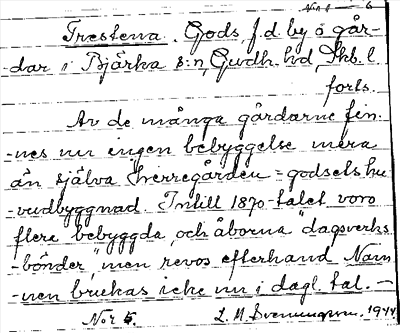 Trestena. Gods, f.d. by o går-
-dar i Bjärka s:n, Gudh. hd, Skb. l.
forts.
Av de många gårdarne fin-
-nes nu ingen bebyggelse mera
än själva Herregården = godsets hu-
-vudbyggnad. Intill 1870-talet voro
flere bebyggda, och åborna "dagsverks-
-bönder", men revos efterhand. Nam-
-nen brukas icke nu i dagl. tal. —
Nör 5. L. M. Svenungsson. 1944